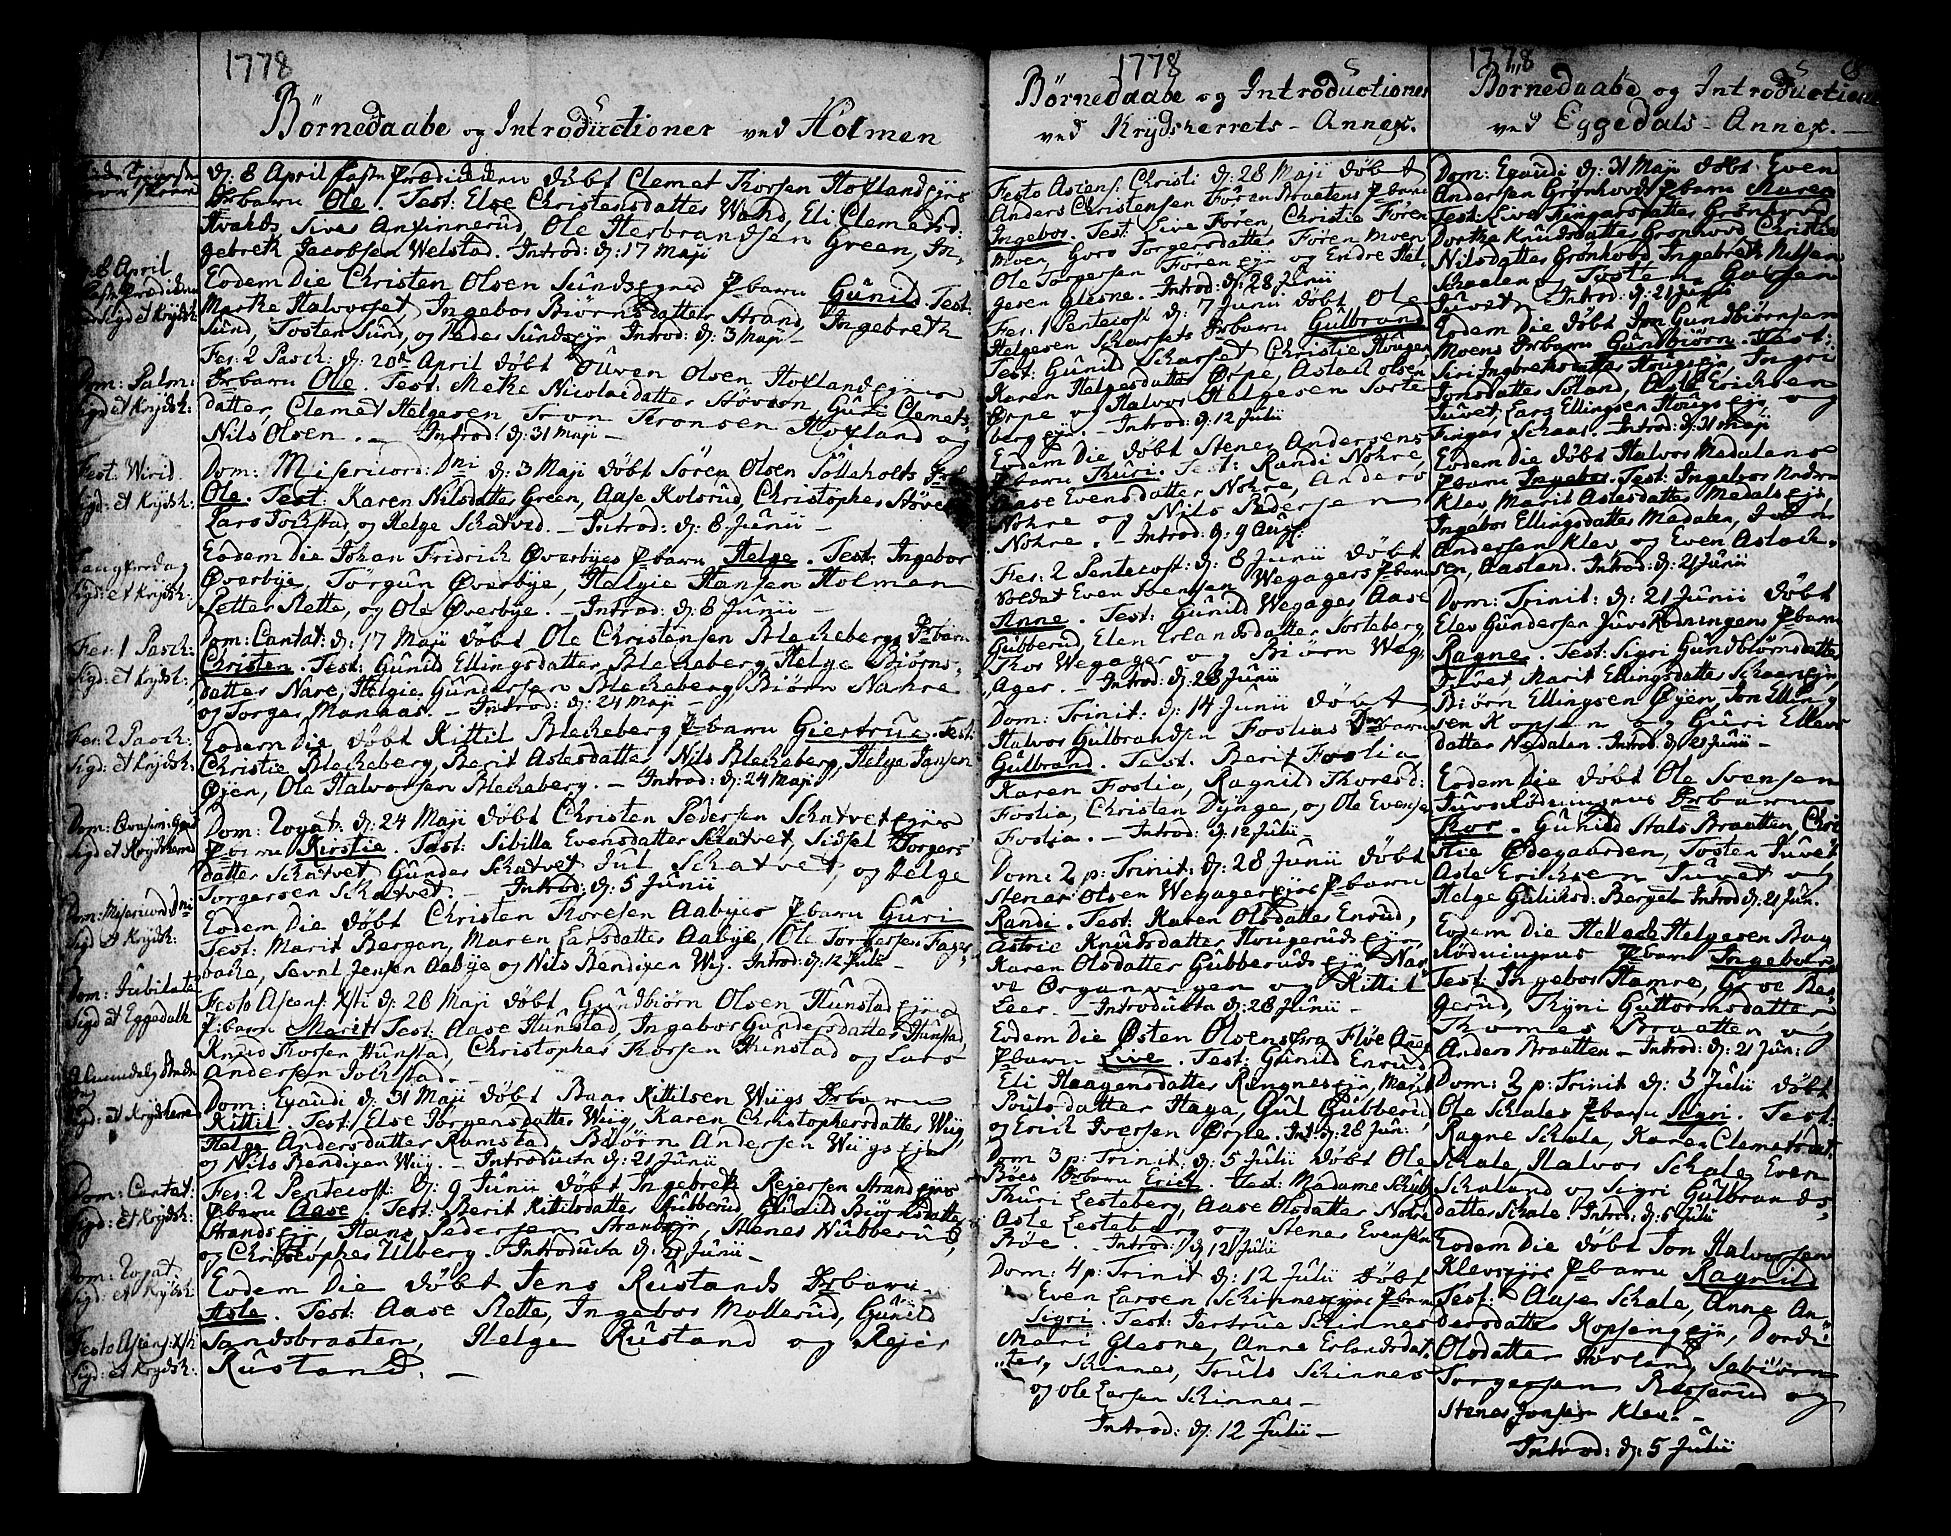 1778
Börnedaabe og Introductioner ved Holmen
d: 8 April dübt Clemet Thorsen Hoxlandejes
Drbarn Ole. Test: Else Christensdatter Wahd, Eli Clemetsd:
Hvalds, Sives Anfinnerud, Ole Herbrandsen Green, In-
gebreth Jacobsen Welstad. Introd: d: 17 Maji
Eodem Die Christen Olsen Sundsejes Pbarn Gunild Test:
Marthe Halvorset, Ingebor Biörnsdatter Strand, Ingebreth
Sund, Tosten Sund, og Peder Sundsejn Introd: d: 3 Maji
Fer: 2 Pasch: d: 20de April döbt Ouven Olsen Hoxlandejes
Drbarn Ole. Test: Mette Nicolaidatter Hövern, Guri Clemets-
datter, Clemet Helgesen, Tron Tronsen Hoxland og
Nils Olsen. Introd: d: 31 Maji
Dom: Misericord: Dni d: 3 Maji döbt Sören Olsen Tolleholts
Ole. Test: Karen Nilsdatter Green, Aase Kolsrud, Christopher Höver
Lars Jokstad, og Helge Schatved. Introd: d: 8 Junii
Eodem Die Johan Fridrich Överbyes Pbarn Helge. Test: Ingebor
Överbye, Törgun Överbye, Helgie Hansen Holmen
Petter Slette, og Ole Överbye. Introd: d: 8 Junii
Dom: Cantat: d: 17 Maji döbt Ole Christensen Blecheberg Drbarn
Christen. Test: Gunild Ellingsdatter Blecheberg, Helge Biörns-
datter Nare, Helgie Gundersen Blecheberg, Biörn Nahre
og Torger Manaas. Introd: d: 24 Maji
Eodem Die döbt Kittil Blecheberg Pbarn Giertrue. Test:
Christie Blecheberg, Berit Aslesdatter, Nils Blecheberg, Helge Jansen
Öjen, Ole Halvorsen Blecheberg. Introd: d: 24 Maji
Dom: Rogat: d: 24 Maji döbt Christen Pedersen Schatvetejes
Pbarn Kirstie. Test: Sibilla Evensdatter Schatvet, Sidsel Torgers-
datter Schatvet, Gunder Schatvet, Jul Schatvet, og Helge
Torgersen Schatvet. Introd: d: 5 Junii
Eodem Die döbt Christen Thoresen Aabyes Pbarn Guri
Test: Marit Bergan, Maren Larsdatter Aabye, Ole Torgersen Fager-
bache, Jensen Aabye og Nils Bendixen Wij. Introd: d: 12 Julii
Festo Ascens: Xsti d: 28 Maji döbt Gundbiörn Olsen Hunstadejes
Pbarn Marit Test: Aase Hunstad, Ingebor Gundersdatter Hunstad,
Knud Thorsen Hunstad, Christopher Thorsen Hunstad og Lars
Andersen Jokstad.
Dom: Exaudi d: 31 Maji döbt Baar Kittilsen Wiigs Drbarn
Kittil. Test: Else Jörgensdatter Wiig, Karen Christophersdatter Wiig,
Helge Andersdatter Ramstad, Biörn Andersen Wiigsejer
og Nils Bendixen Wiig. Introducta d: 21 Junii
Fer: 2 Pentecost: d: 9 Junii döbt Ingebreth Rejersen Strandejes
Pbarn Aase. Test: Berit Kittilsdatter Gubberud, Gunild Biörnsdatter
Strandsejer, Hans Pedersen Strandejer, Stenes Nubberud,
og Christopher Ulberg. Introducta d: 21 Junii
Eodem Die döbt Jens Rustands Drbarn
Asle. Test: Aase Slette, Ingebor Mollerud, Gunild
Sandsbraaten, Helge Rustand og Rejer
Rustand.
d. 8 April
Sigd et Krydsh:
Dom: Palm:
Sigd et Krydsh:
Fest: Virid
Sigd: et Krydsh:
Langfredag
Sigd: et Krydsh:
Fer: 1 Pasch:
Sigd: et Krydsh:
Fer: 2 Pasch:
Sigd: et Krydsh:
Dom: Qvasim: Geni
Sigd et Krydsherred
Dom: Misericord: Dni
Sigd et Krydsh:
Dom: Jubilate
Sigd et Eggedahl
Almindelig Bededag
Sigd: et Krydsherred
Dom: Cantat:
Sigd: et Krydsh:
Dom: Rogat
Sigd: et Krydsh:
Festo Ascens: Xsti
Sigd: et Krydsh:
1778
Börnedaabe og Introductioner
ved Krydsherrets-Annex.
Festo Ascens: Christi d: 28 Maji döbt
Anders Christensen Fören Braatens Pbarn
Ingebor. Test: Live Fören, Christie Fören
Moen, Goro Torgersdatter Fören Moen
Ole Torgersen Förenejn og Endre Hel-
gesen Glesne. Introd: d: 28 Junii
Fer: 1 Pentecost d: 7 Junii döbt Ole
Helgesen Scharsets Drbarn Gulbrand
Test: Gunild Scharset, Christie Houger
Karen Helgesdatter Örpe, Aslach Olsen
Örpe og Halvor Helgesen Sorte-
bergejn. Introd: d: 12 Julii
Eodem Die döbt Stener Andersens
Pbarn Thuri. Test: Randi Nohre,
Aase Evensdatter Nohre, Anders
Nohre og Nils Pedersen
Nohre. Introd: d: 9 Aug:
Fer: 2 Pentecost: d: 8 Junii döbt
Soldat Even Svensen Wegagers Pbarn
Anne. Test: Gunild Wegager, Aase
Gubberud, Elen Erlandsdatter Sorteberg,
Thor Wegager og Biörn Weg-
Ager. Introd: d: 28 Junii
Dom: Trinit: d: 14 Junii döbt
Halvor Gulbrandsen Foslias Drbarn
Gulbrand. Test: Berit Foslia,
Karen Foslia, Ragnild Thoresd:
Foslia, Christen Dynge, og Ole Evensen
Foslia. Introd: d: 12 Julii
Dom: 2 p: Trinit: d: 28 Junii döbt
Stener Olsen Wegagersejes Pbarn
Randi. Test: Karen Olsdatter Enrud,
Astrie Knudsdatter Hougerudsejer,
Karen Olsdatter Gubberudsejn, Nar-
ve Organvigen og Kittil
Leer. Introducta d: 28 Junii
Eodem Die Östen Olsens fra Flöe Ager
Pbarn Live. Test: Gunild Enrud,
Eli Haagensdatter Ringnesejn, Marit
Poulsdatter Haga, Gul Gubberud,
og Erich Iversen Örpe. Int: d: 28 Jun:
Dom 3 p: Trinit: d: 5 Julii döbt Ole
Böes Drbarn Erich. Test: Madame Schub
Thuri Lesteberg, Aase Olsdatter Nohre
Asle Lesteberg og Stener Evensen
Böe. Introd: d: 12 Julii
Dom: 4 p: Trinit d: 12 Julii döbt
Even Larsen Schinnesejes Pbarn
Sigri. Test: Jertrue Schinnes
Mari Glesne, Anne Erlandsdat-
ter, Schinnes, Truls Schinnes
og Ole Larsen Schinnes
Introd: d: 12 Julii
1778
8
Börnedaabe og Introductioner
ved Eggedals-Annex.
Dom: Exaudi d: 31 Maji döbt Even
Andersen Grönhovds Pbarn Maren
Test: Live Fingarsdatter Grönhovd
Dorthe Knudsdatter Grönhovd Christie
Nilsdatter Grönhovd Ingebreth Nilsen
Schaalen og Tosten Gulvsen
Juvet. Introd: d: 21 Junii
Eodem Die döbt Jon Gundbiörnsen
Moens Drbarn Gundbiörn. Test:
Siri Ingbrethsdatter Hougsejn, Ingri
Jonsdatter Scaland, Asle Erichsen
Juvet, Lars Ellingsen Hougsejn og
Fingar Schaas. Introd: d: 31 Maji
Eodem Die döbt Halvor Medalens
Pbarn Ingebor. Test: Ingebor Anders
Klev, Marit Aslesdatter Medalsejn,
Ingebor Ellingsdatter Medalen, Iver
Andersen Klev og Even Aslach-
sen, Aasland. Introd: d: 21 Junii
Dom: Trinit: d: 21 Junii döbt
Elev Gundersen Juvsrödningens Pbarn
Ragne. Test: Sigri Gundbiörnsdatter
Juvet, Marit Ellingsdatter Schaarsejn,
Biörn Ellingsen Öyen, Jon Elling-
sen Kopsen og Guri Ellevs-
datter Nedalen. Introd: d: 21 Junii
Eodem Die döbt Ole Svensen
Juvsrödningens Drbarn
Thor. Gunild Stals Braatten, Chri-
stie Ödegaarden, Tosten Juvet
Asle Erichsen Juvet og
Helge Guliksd: Berget Introd: d: 21 Jun:
Eodem Die Helgesen Bag
Rödningens Pbarn Ingebor.
Test: Ingebor Hamre, Groe Bas-
gerud, Kyni Guttormsdatter
Thomes Braatten og
Anders Braatten. Introd: d: 21 Jun:
Dom: 2 p: Trinit d: 3 Julii döbt
Ole Schales Pbarn Sigri. Test:
Ragne Schala, Karen Clemetsdat.
Schale, Halvor Schale, Even
Schaland og Sigri Gulbrands-
datter Schale. Introd: d: 5 Julii
Eodem Die döbt Jon Halvorsen
Klevsejes Pbarn Ragnild
Test: Aase Schale, Anne An-
dersdatter Kopsengejn, Dordi
Olsdatter Hovland, Sabiörn
Torgersen Basserud og
Stener Jonsen Klev.
Introd: d: 5 Julii